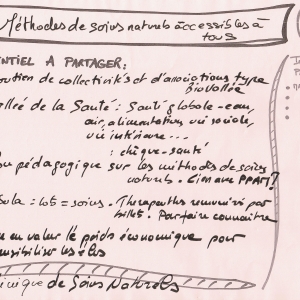 Méthodes de soins naturels accessibles à
tous
ENTIEL A PARTAGER:
outien de collectivités et d'associations type
Biovallée
llée de la Santé: Santé globale - eau,
air, alimentation, vie sociale,
vie intérieure...
: chèque-santé
pédagogique sur les méthodes de soins
naturels.
= soins. Therapeuthes remunérés par
billets. Parfaire connaitre
en valeur le poids économique pour
nsibiliser les élus
inique de Soins Naturels